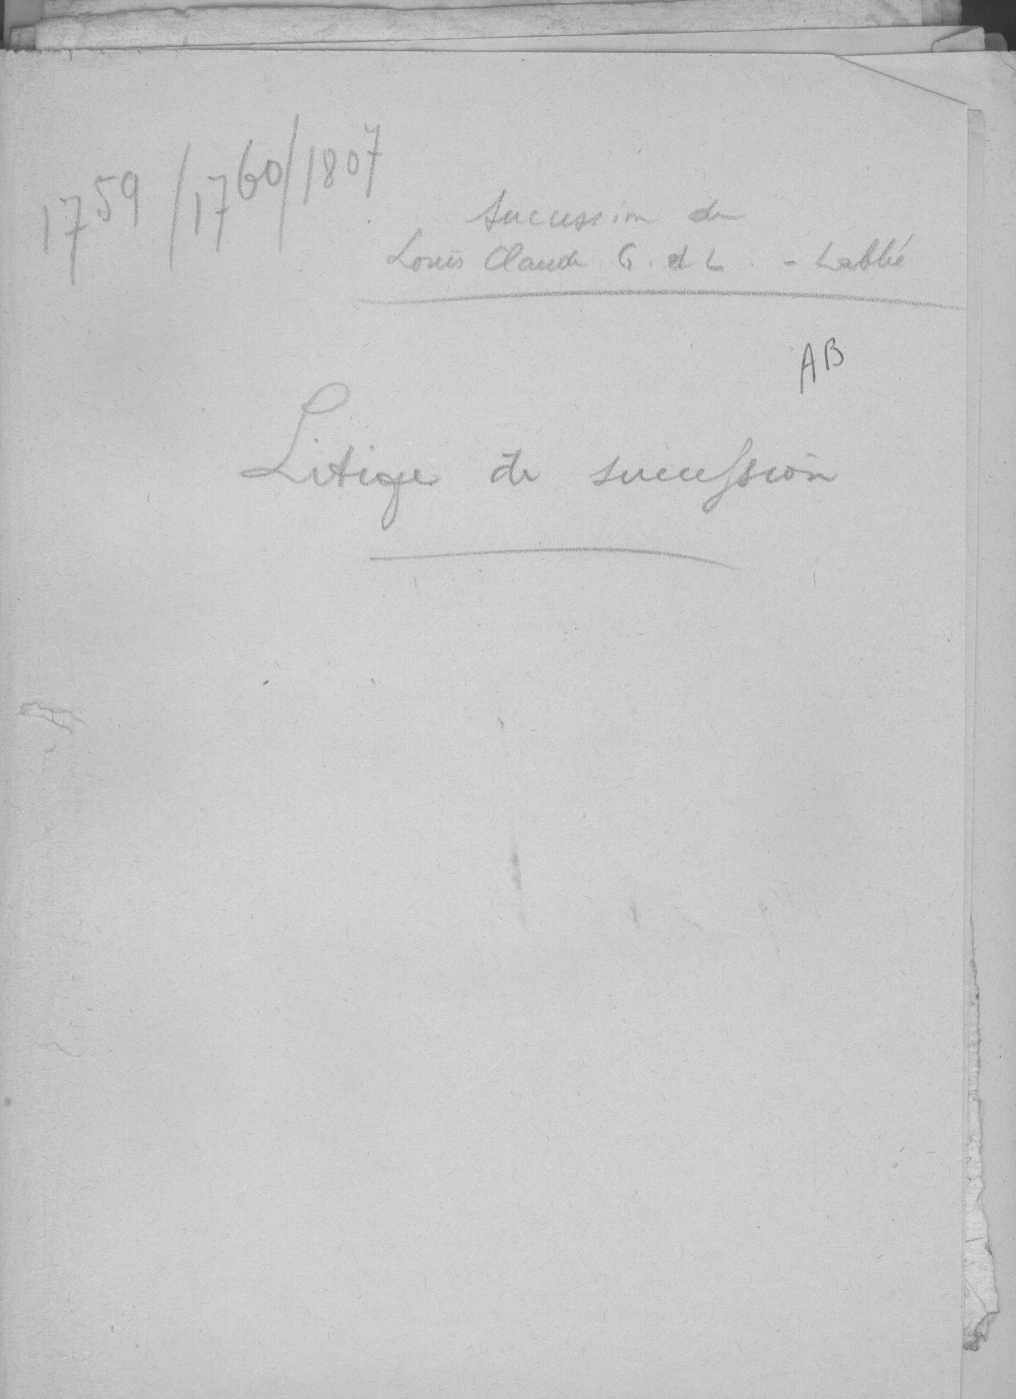 1759/1760/1807
Succession de
Louis Claude G. d L. - Labbé
AB
Litige de succession